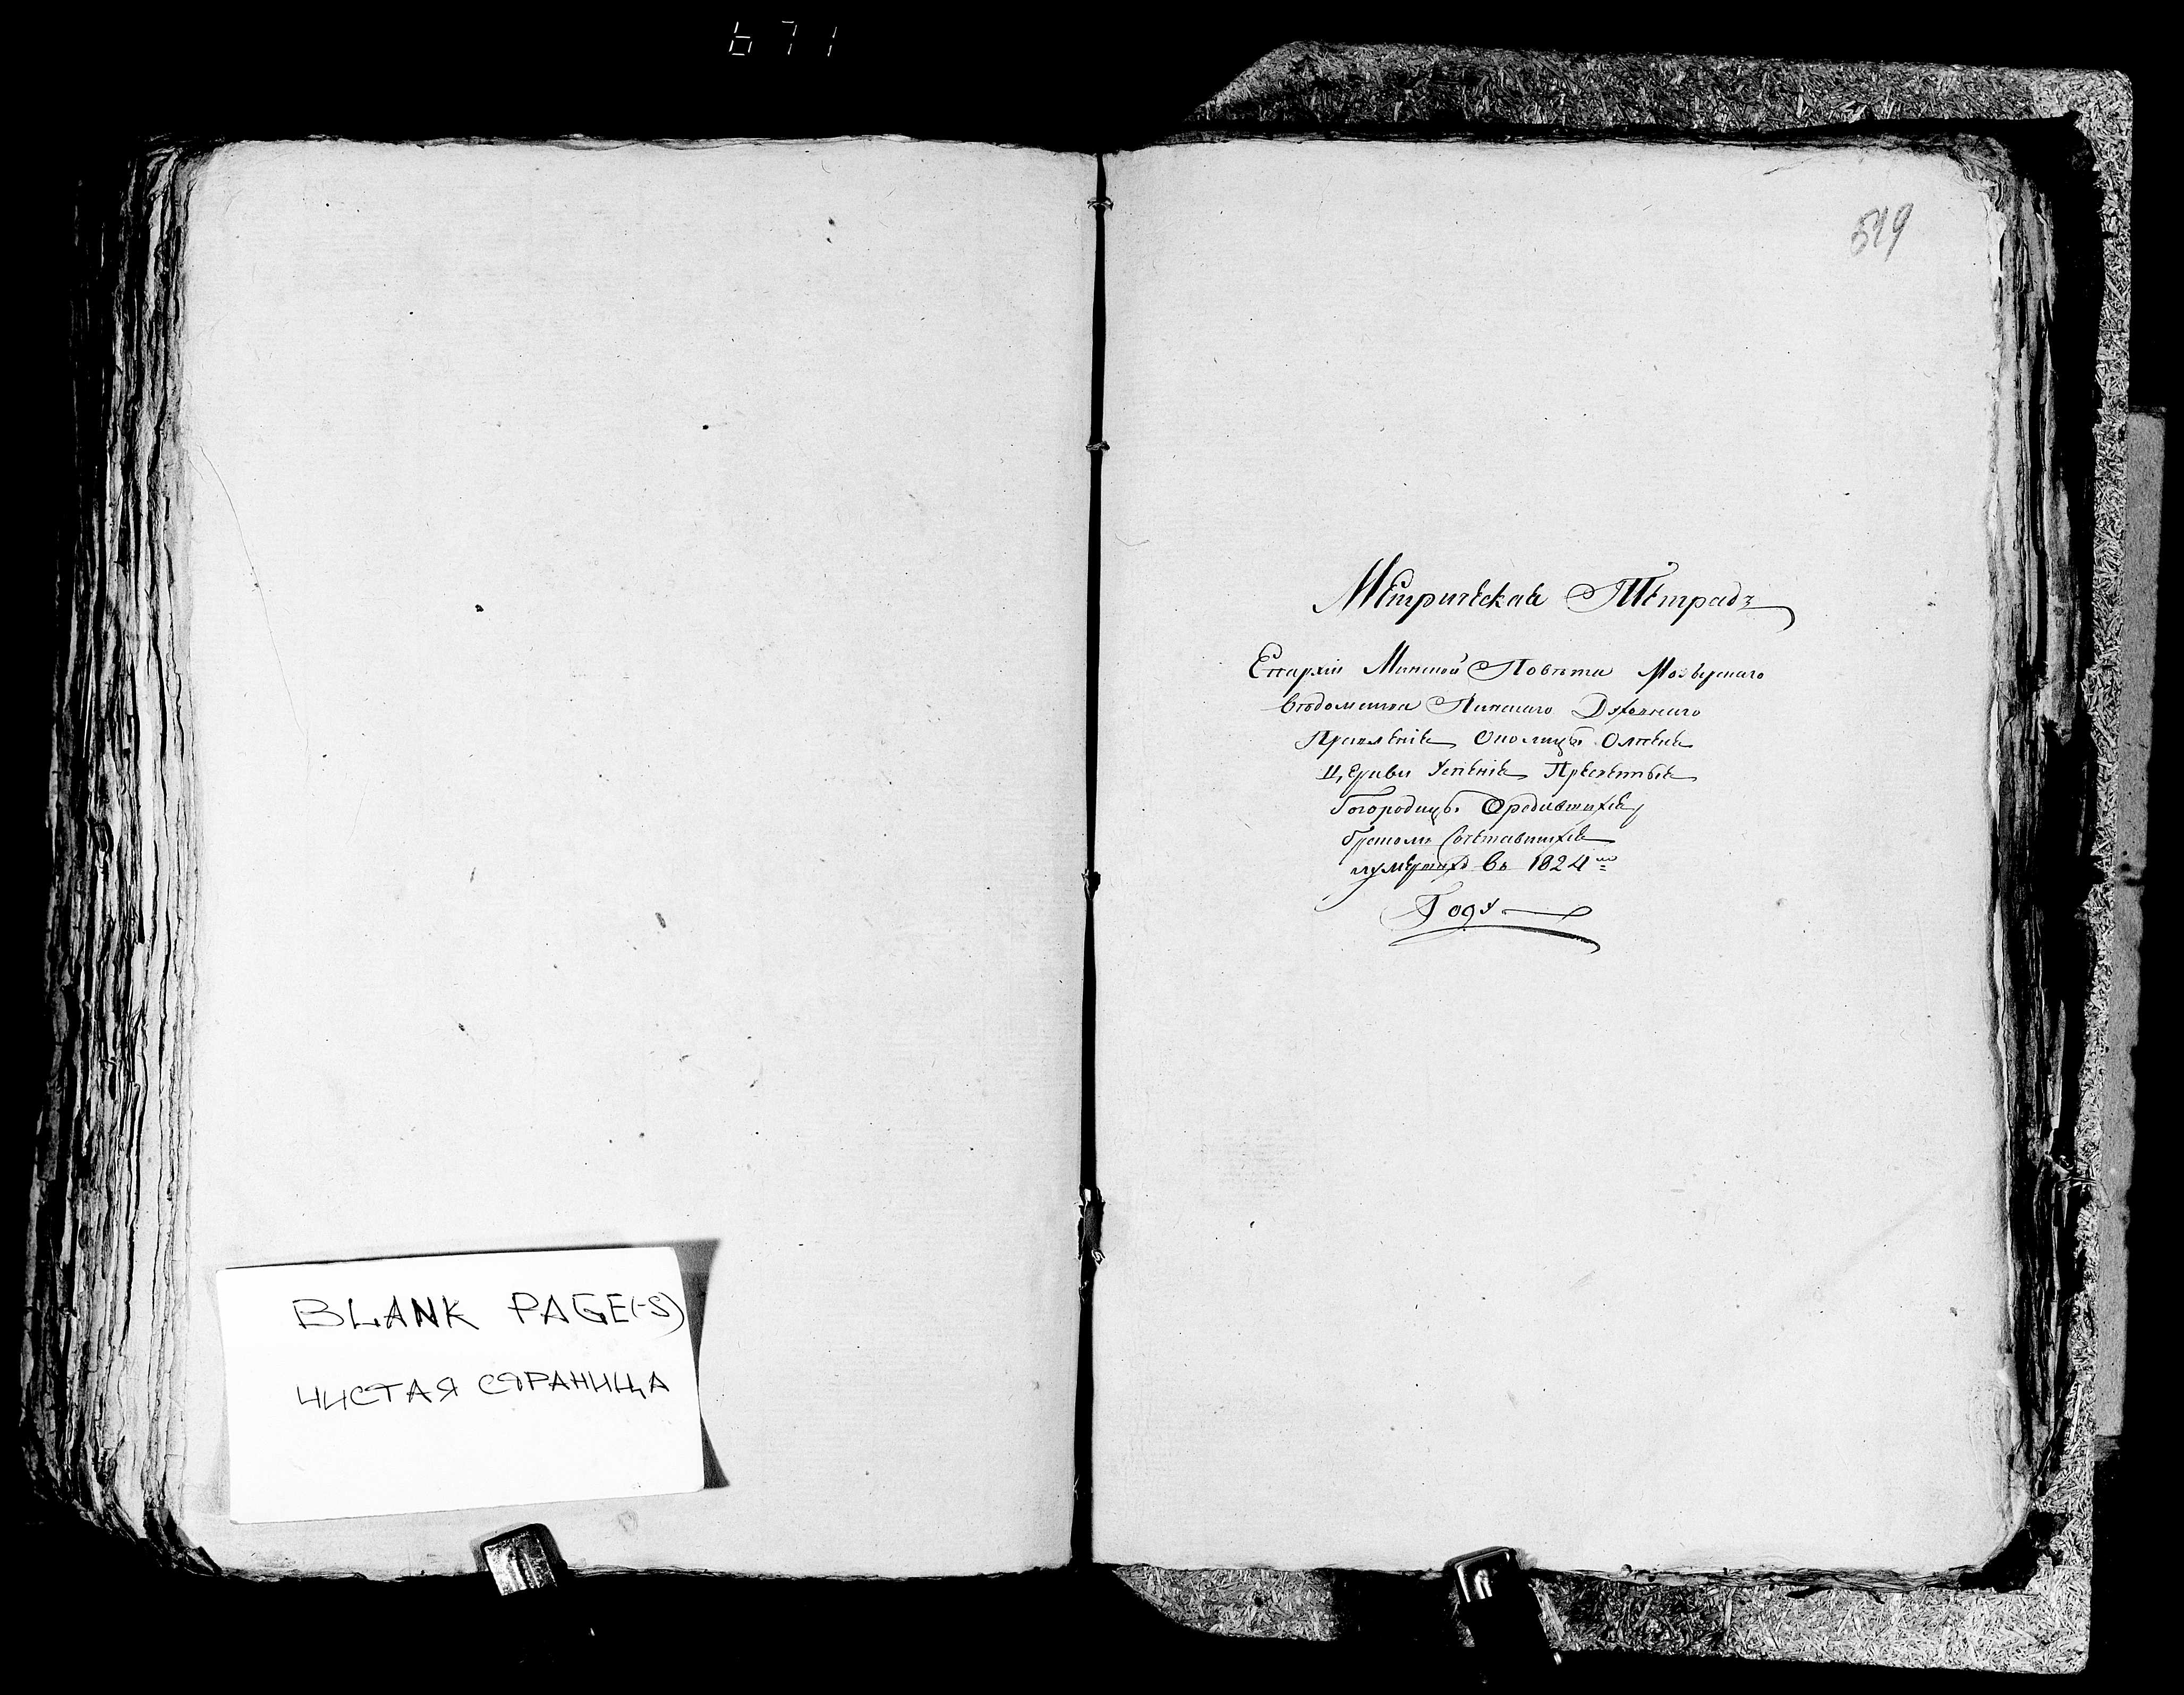 671
519
Метрическая Тетрадъ
Епархіи Минской Повѣта Мозырскаго
вѣдомства Пинскаго Духовнаго
Правленія Околицы
Церкви Успенія Пресвятыя
Богородицы Ородившихся
бракомъ Сочетавшихся
иумершихъ Въ 1824мъ
Году
BLANK PAGE(-S)
ЧИСТАЯ СТРАНИЦА